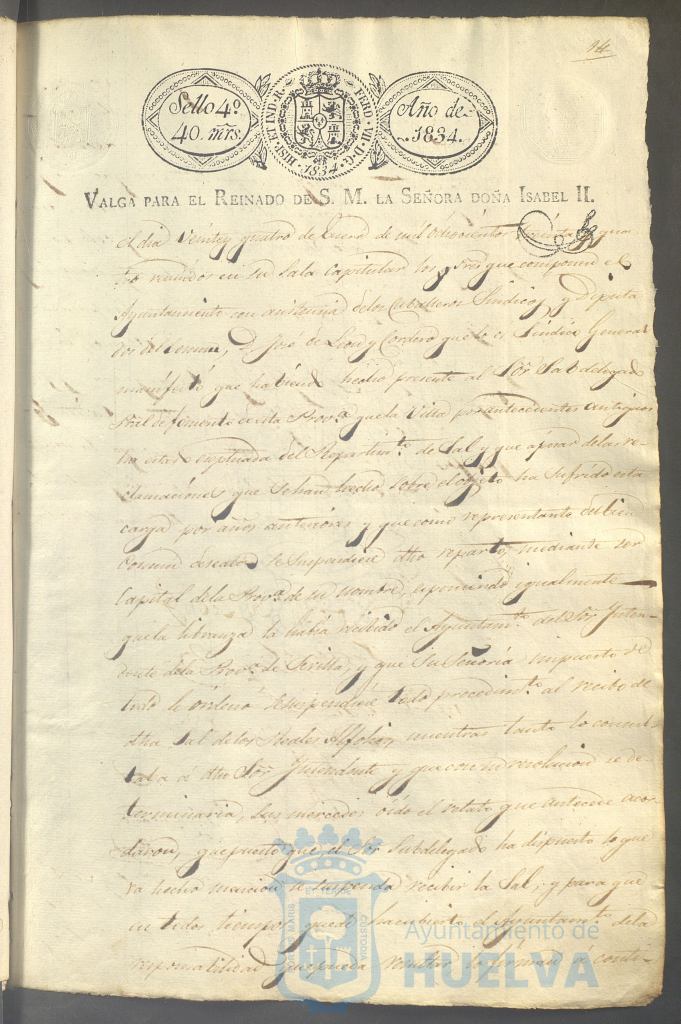 94
Sello 4º
40. mrs.
HISP. ET IND. R. FERD. VII. D. G. 1834.
Año de
1834.
VALGA PARA EL REINADO DE S. M. LA SEÑORA DOÑA ISABEL II.
El dia Veinte y quatro de Enero de mil ochocientos treinta y qua
tro reunidos en su Sala Capitular los Sres que componen el
Ayuntamiento con asistencia de los Caballeros Sindicos y Diputa
dos del Comun, D. José de Leon y Cordero que lo es Sindico General
manifestó que habiendo hecho presente al Sor Subdelegado
Pral de fomento de esta Provª que la Villa por antecedentes antiguos
esta esceptuada del Repartimto de Sal y que apesar de las re-
clamaciones que se han hecho sobre el objeto ha sufrido esta
carga por años anteriores y que como representante del bien
Comun deseaba se suspendiese dho reparto, mediante ser
Capital de la Provª de su nombre, esponiendo igualmente
que la libranza la habia recibido el Ayuntamto del Sor Inten
dente de la Provª de Sevilla, y que Su Señoria impuesto de
todo le ordenó se suspendiese todo procedimto al recibo de
dha Sal de los Reales Alfolies, mientras tanto lo consul
taba á dho Sor Intendente y que con su resolucion se de-
terminaria, Sus mercedes oido el relato que antecede acor
daron, que puesto que el Sor Subdelegado ha dispuesto lo que
va hecho mencion se suspenda recibir la Sal, y para que
en todos tiempos quede á cubierto el Ayuntamto de la
responsabilidad que pueda resultar lo firman á conti-
Ayuntamiento de
HUELVA